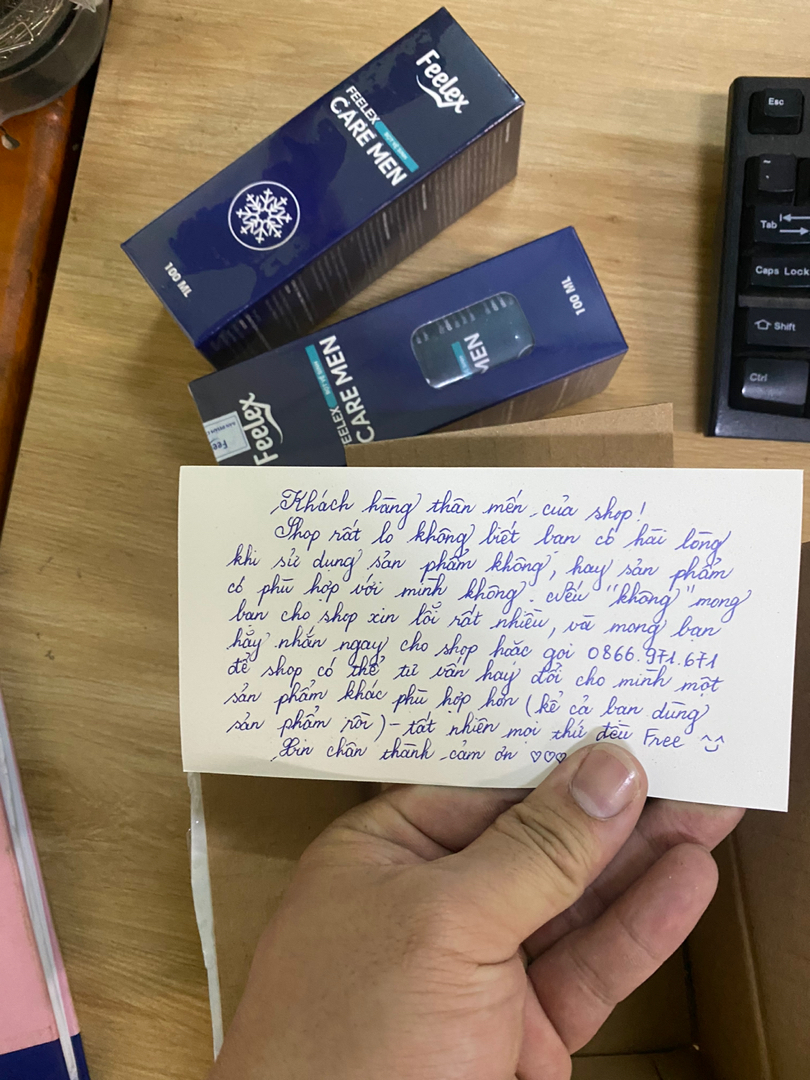 Feelex
FEELEX
BỌT VỆ SINH
CARE MEN
100 ML
100 ML
MEN
BỌT VỆ SINH
FEELEX
CARE MEN
Feelex
Esc
Tab
Caps Lock
Shift
Ctrl
Khách hàng thân mến của shop!
Shop rất lo không biết bạn có hài lòng
khi sử dụng sản phẩm không, hay sản phẩm
có phù hợp với mình không. Nếu "không" mong
bạn cho shop xin lỗi rất nhiều, và mong bạn
hãy nhắn ngay cho shop hoặc gọi 0866.971.671
để shop có thể tư vấn hay đổi cho mình một
sản phẩm khác phù hợp hơn (kể cả bạn dùng
sản phẩm rồi) - tất nhiên mọi thứ đều Free ^^
Xin chân thành cảm ơn ♡♡♡